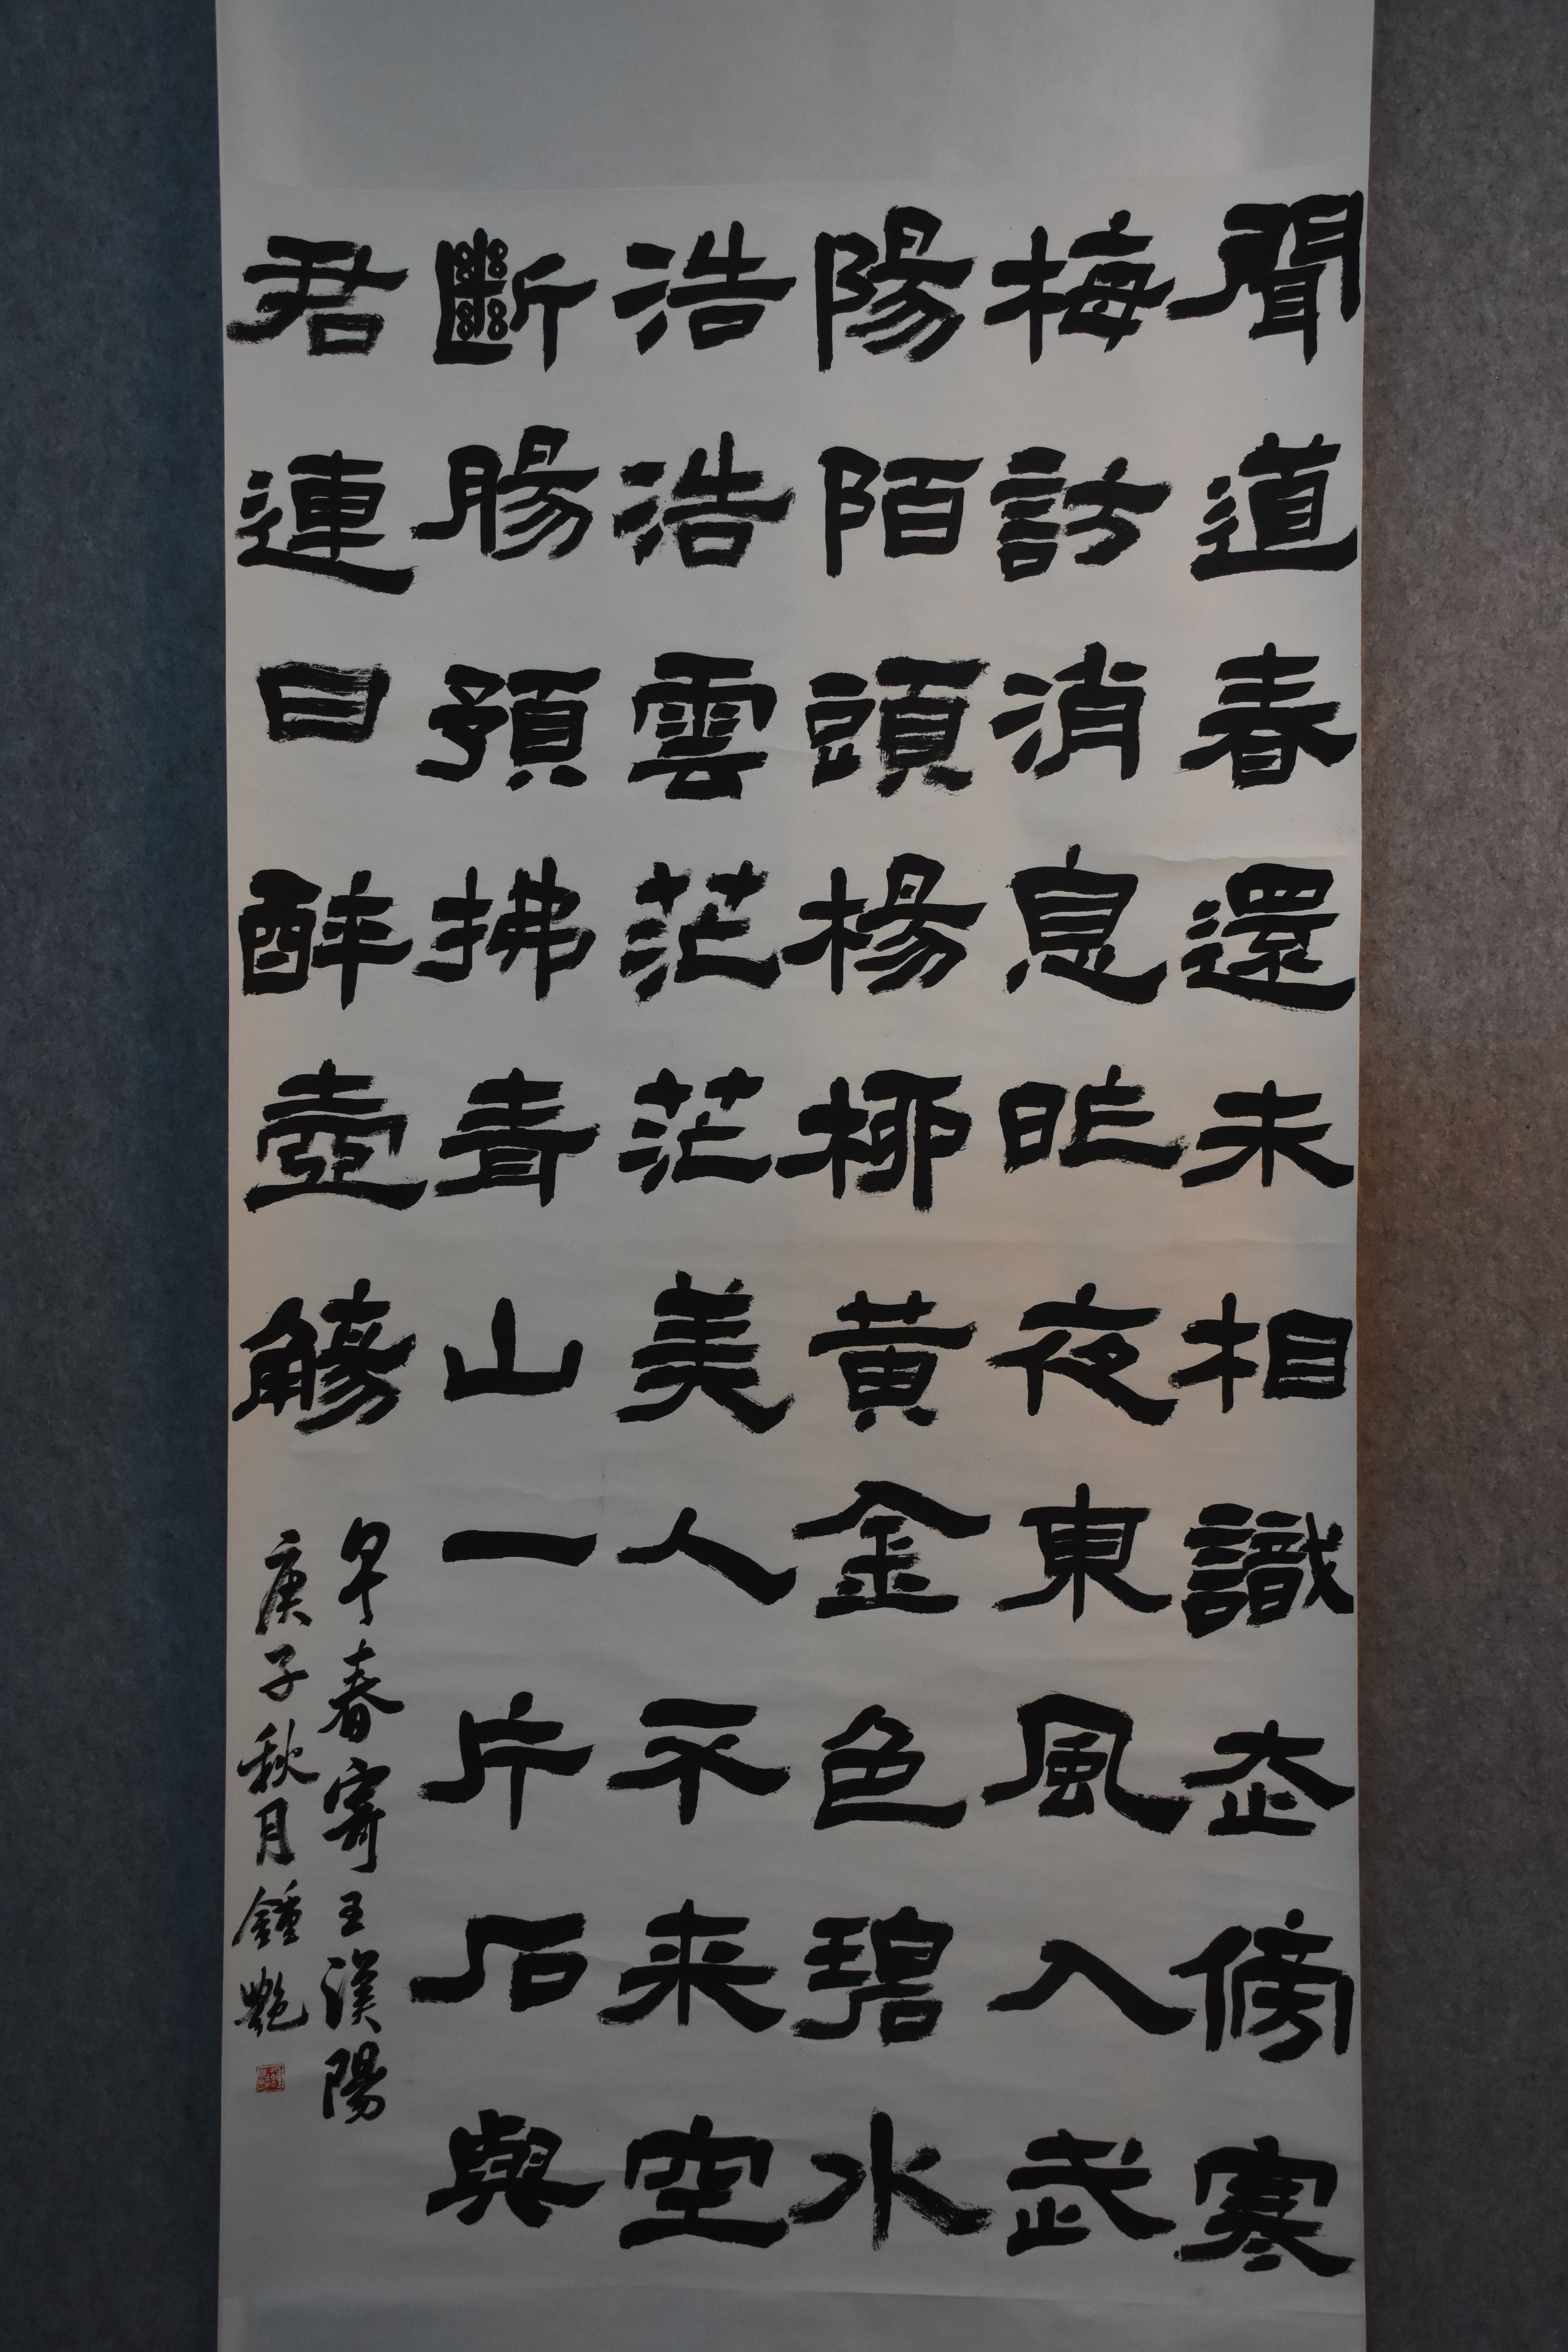 聞道春還未相識走傍寒
梅訪消息昨夜東風入武
陽陌頭楊柳黃金色碧水
浩浩雲茫茫美人不来空
斷腸預拂青山一片石與
君連日醉壺觴
早春寄王漢陽
庚子秋月鍾艷